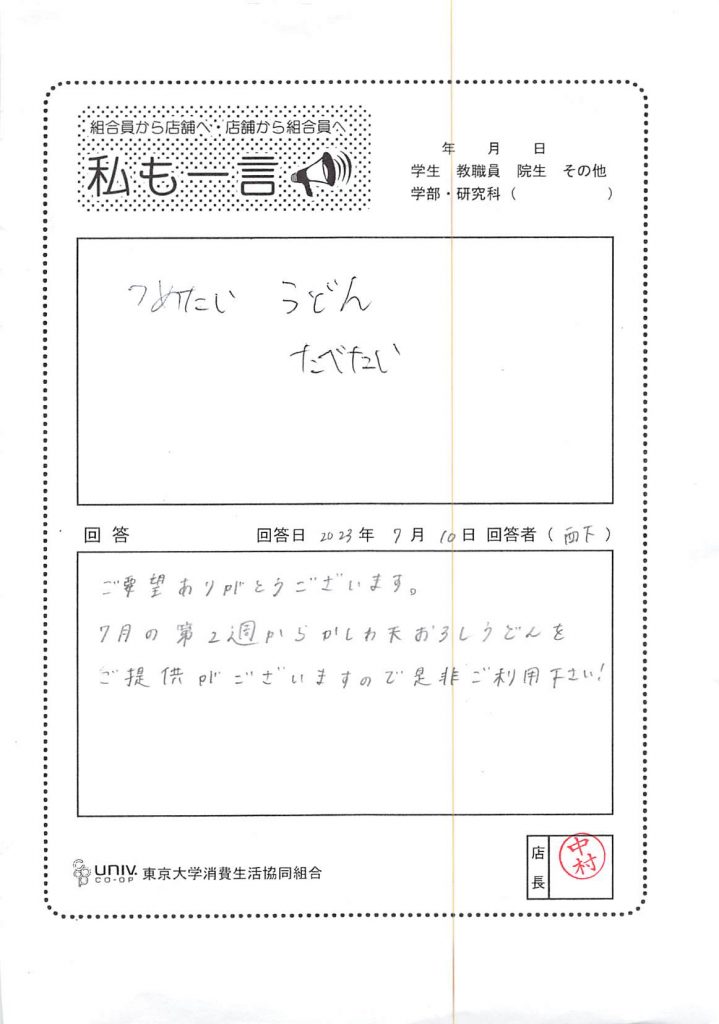 組合員から店舗へ・店舗から組合員へ
私も一言
年 月 日
学生 教職員 院生 その他
学部・研究科（ ）
つめたい うどん
たべたい
回答 回答日 2023年 7月 10日 回答者（西下）
ご要望ありがとうございます。
7月の第2週からかしわ天おろしうどんを
ご提供がございますので是非ご利用下さい!
UNIV. CO-OP 東京大学消費生活協同組合
店長
中村